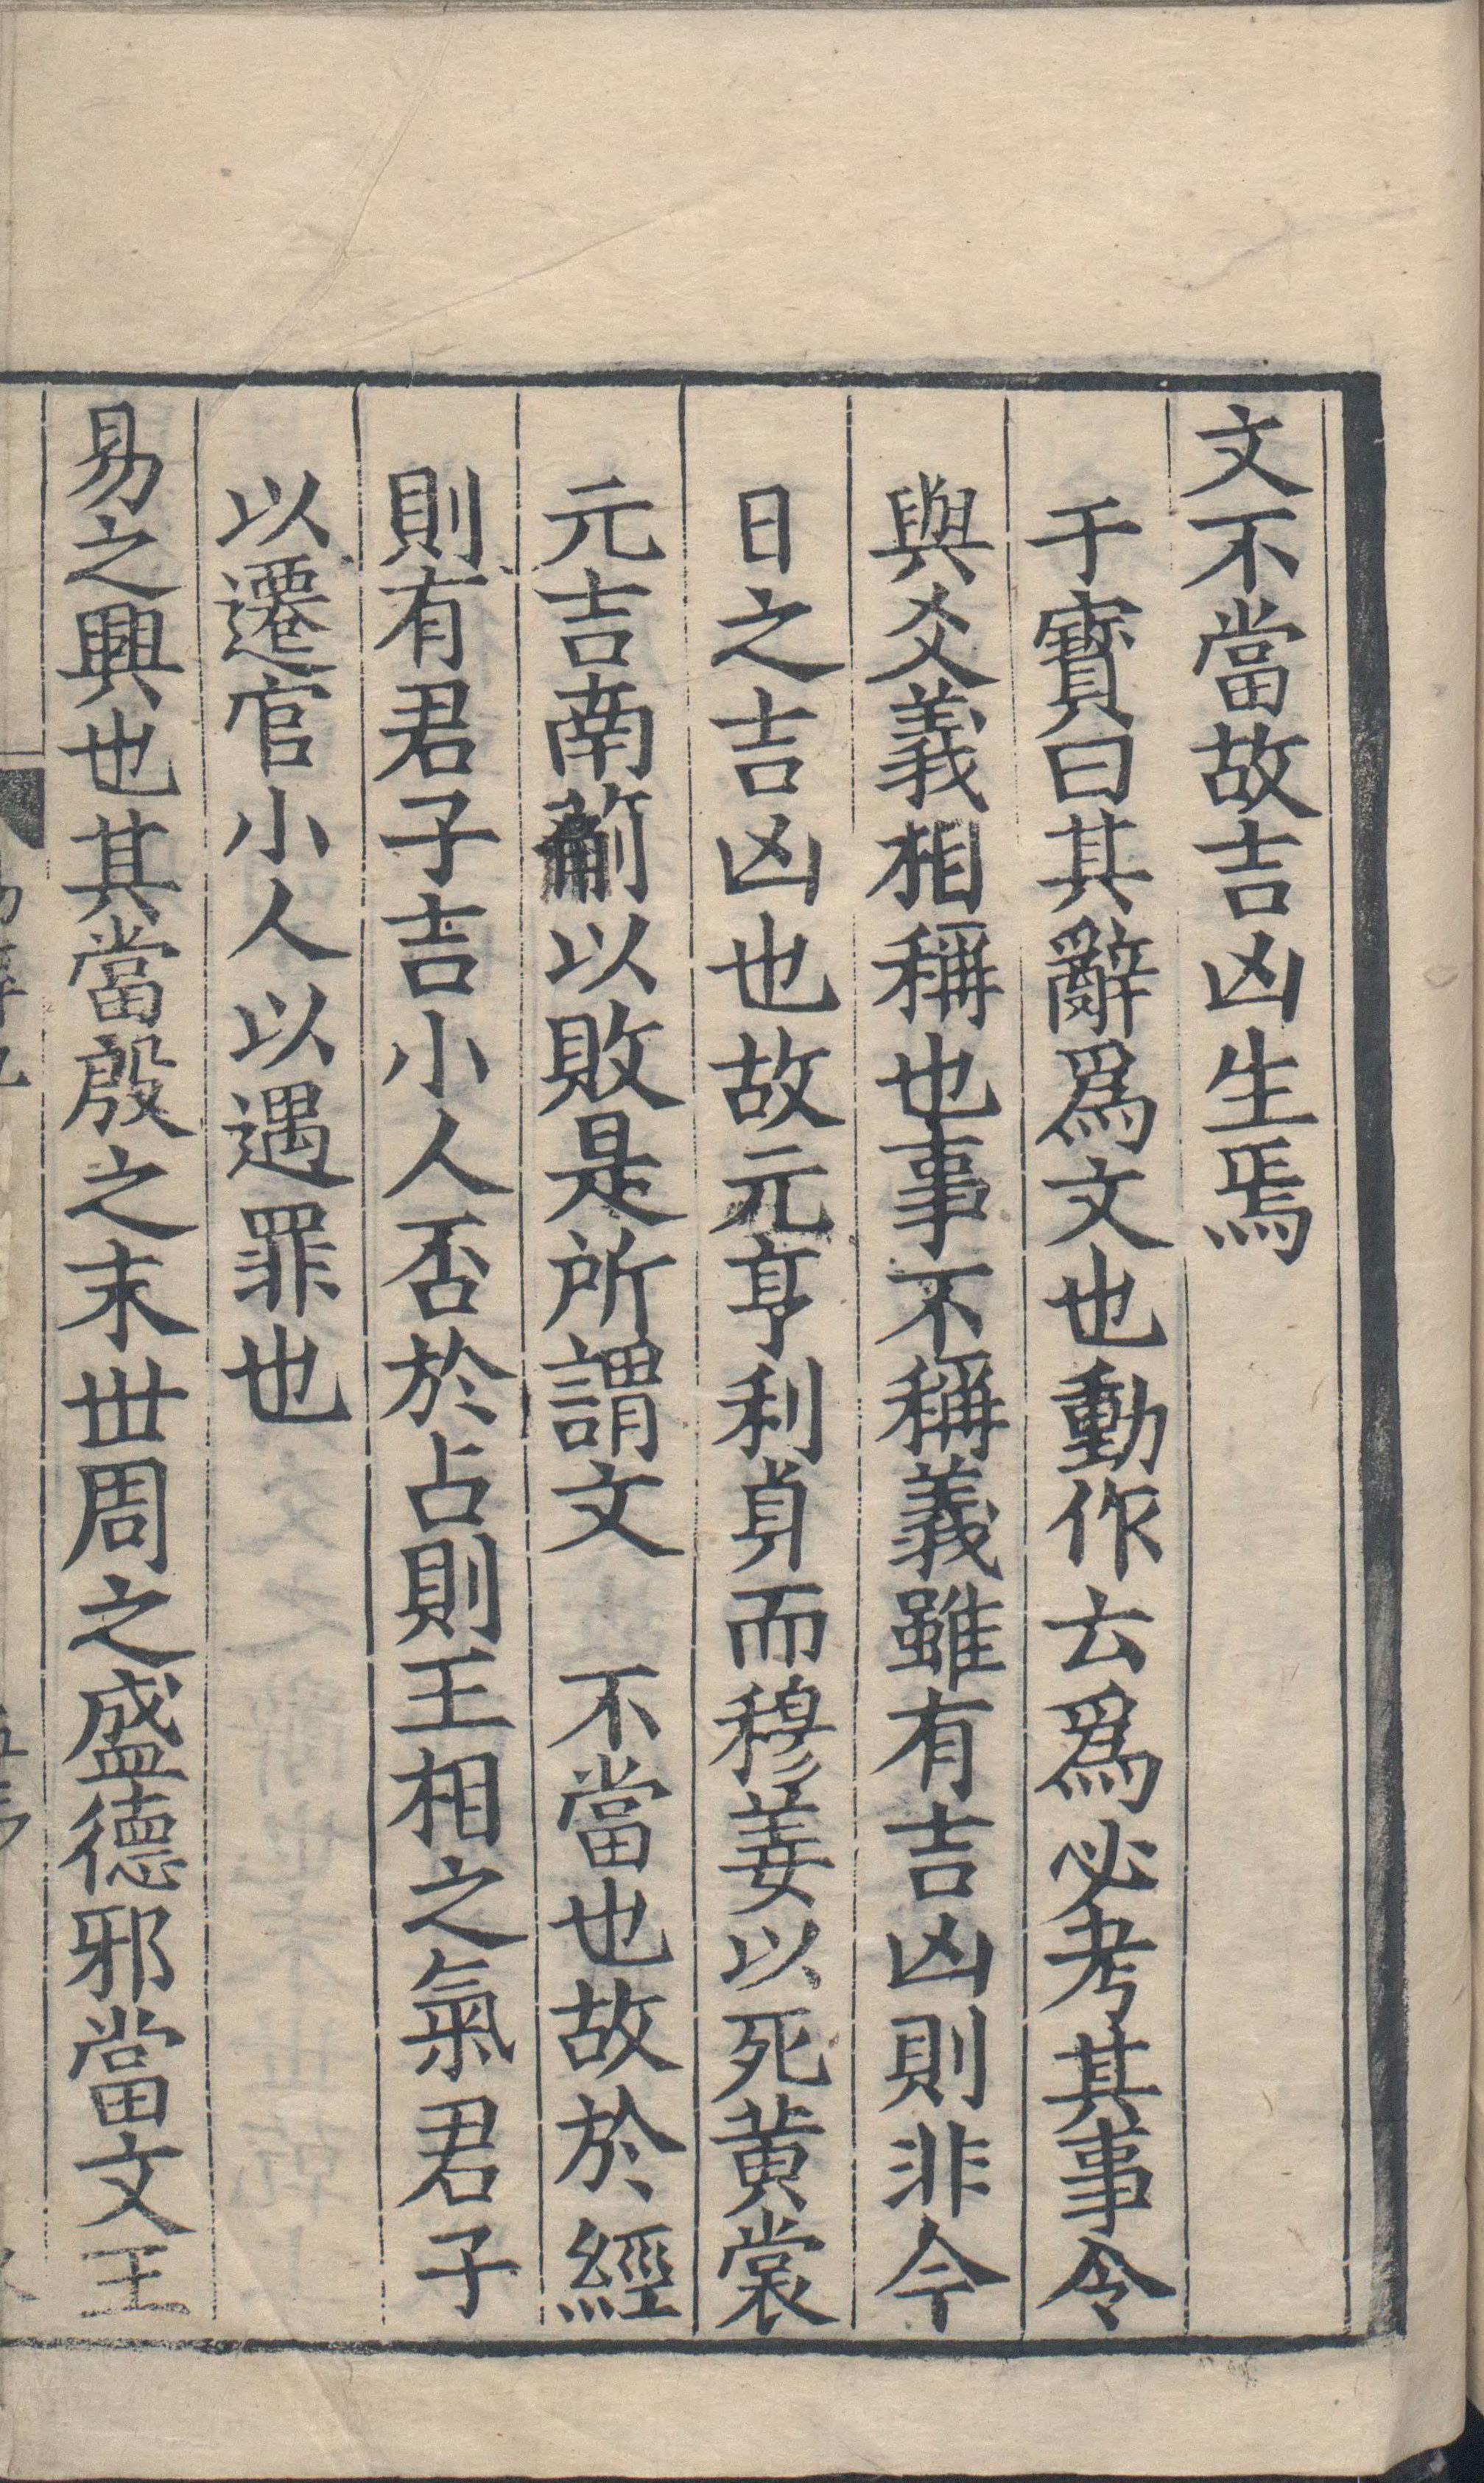 文不當故吉凶生焉
干寳曰其辭爲文也動作云爲必考其事令
與爻義相稱也事不稱義雖有吉凶則非今
日之吉凶也故元亨利貞而穆姜以死黃裳
元吉南蒯以敗是所謂文　不當也故於經
則有君子吉小人否於占則王相之氣君子
以遷官小人以遇罪也
易之興也其當殷之末世周之盛德邪當文王